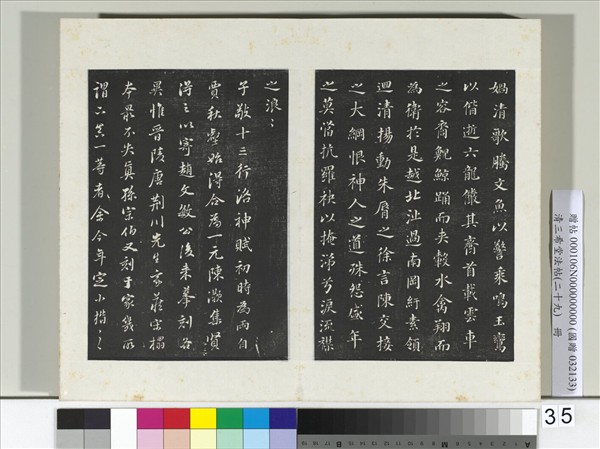 媧清歌騰文魚以警乘鳴玉鸞
以偕逝六龍儼其齊首載雲車
之容裔鯢鯨踊而夾轂水禽翔而
為衛於是越北沚過南岡紆素領
迴清揚動朱脣之徐言陳交接
之大綱恨神人之道殊怨盛年
之莫當抗羅袂以掩涕兮淚流襟
之浪〻
子敬十三行洛神賦初時為兩自
賈秋壑始得合為一元陳灝集賢
得之以寄趙文敏公後來摹刻略
異惟晉陵唐荊川先生家藏宋榻
本最不失真孫宗伯又刻于家幾所
謂亡是一等者余今年定小楷〻
贈帖 000106N000000000 (國贈 032133)
清三希堂法帖(二十九) 冊
35